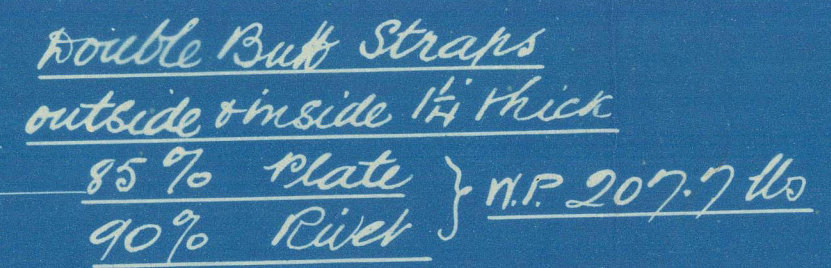 Double Butt Straps
outside & inside 1 1/4" thick
85 % Plate
90% Rivet } W.P. 207.7 lbs